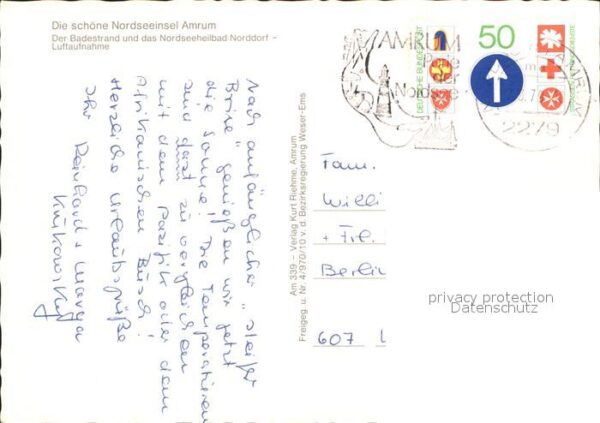 Die schöne Nordseeinsel Amrum
Der Badestrand und das Nordseeheilbad Norddorf -
Luftaufnahme
Nach anfänglicher "steifer
Brise" genießen wir jetzt
die Sonne! Die Temperaturen
sind dazu vergleichen
mit dem Pazifik oder dem
Afrikanischen Busch!
Herzliche Urlaubsgrüße
Ihr Reinhard + Marga
Am 339 - Verlag Kurt Riehme, Amrum
Freigeg. u. Nr. 4/970/10 v. d. Bezirksregierung Weser-Ems
AMRUM
Perle
der
Nordsee
DEUTSCHE BUNDESPOST
50
2279
Fam.
Willi
+ Frl.
Berlin
607
privacy protection
Datenschutz